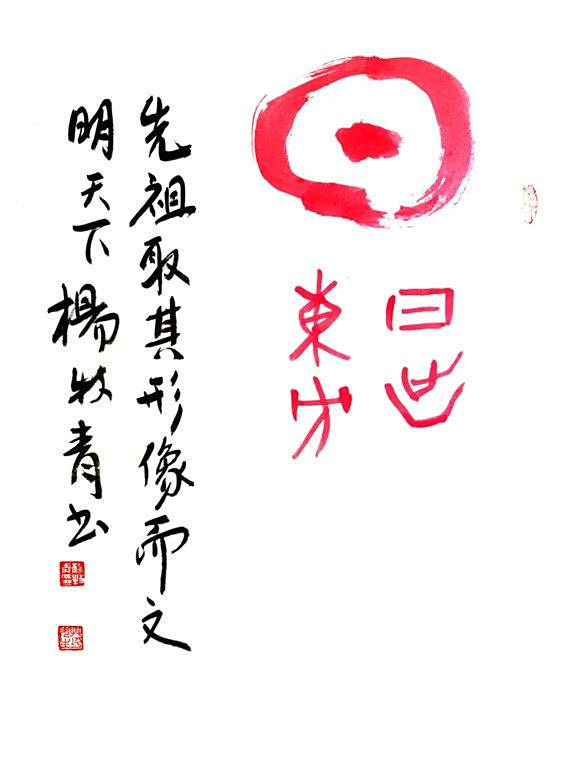 日
日出
東方
先祖取其形像而文
明天下楊牧青书